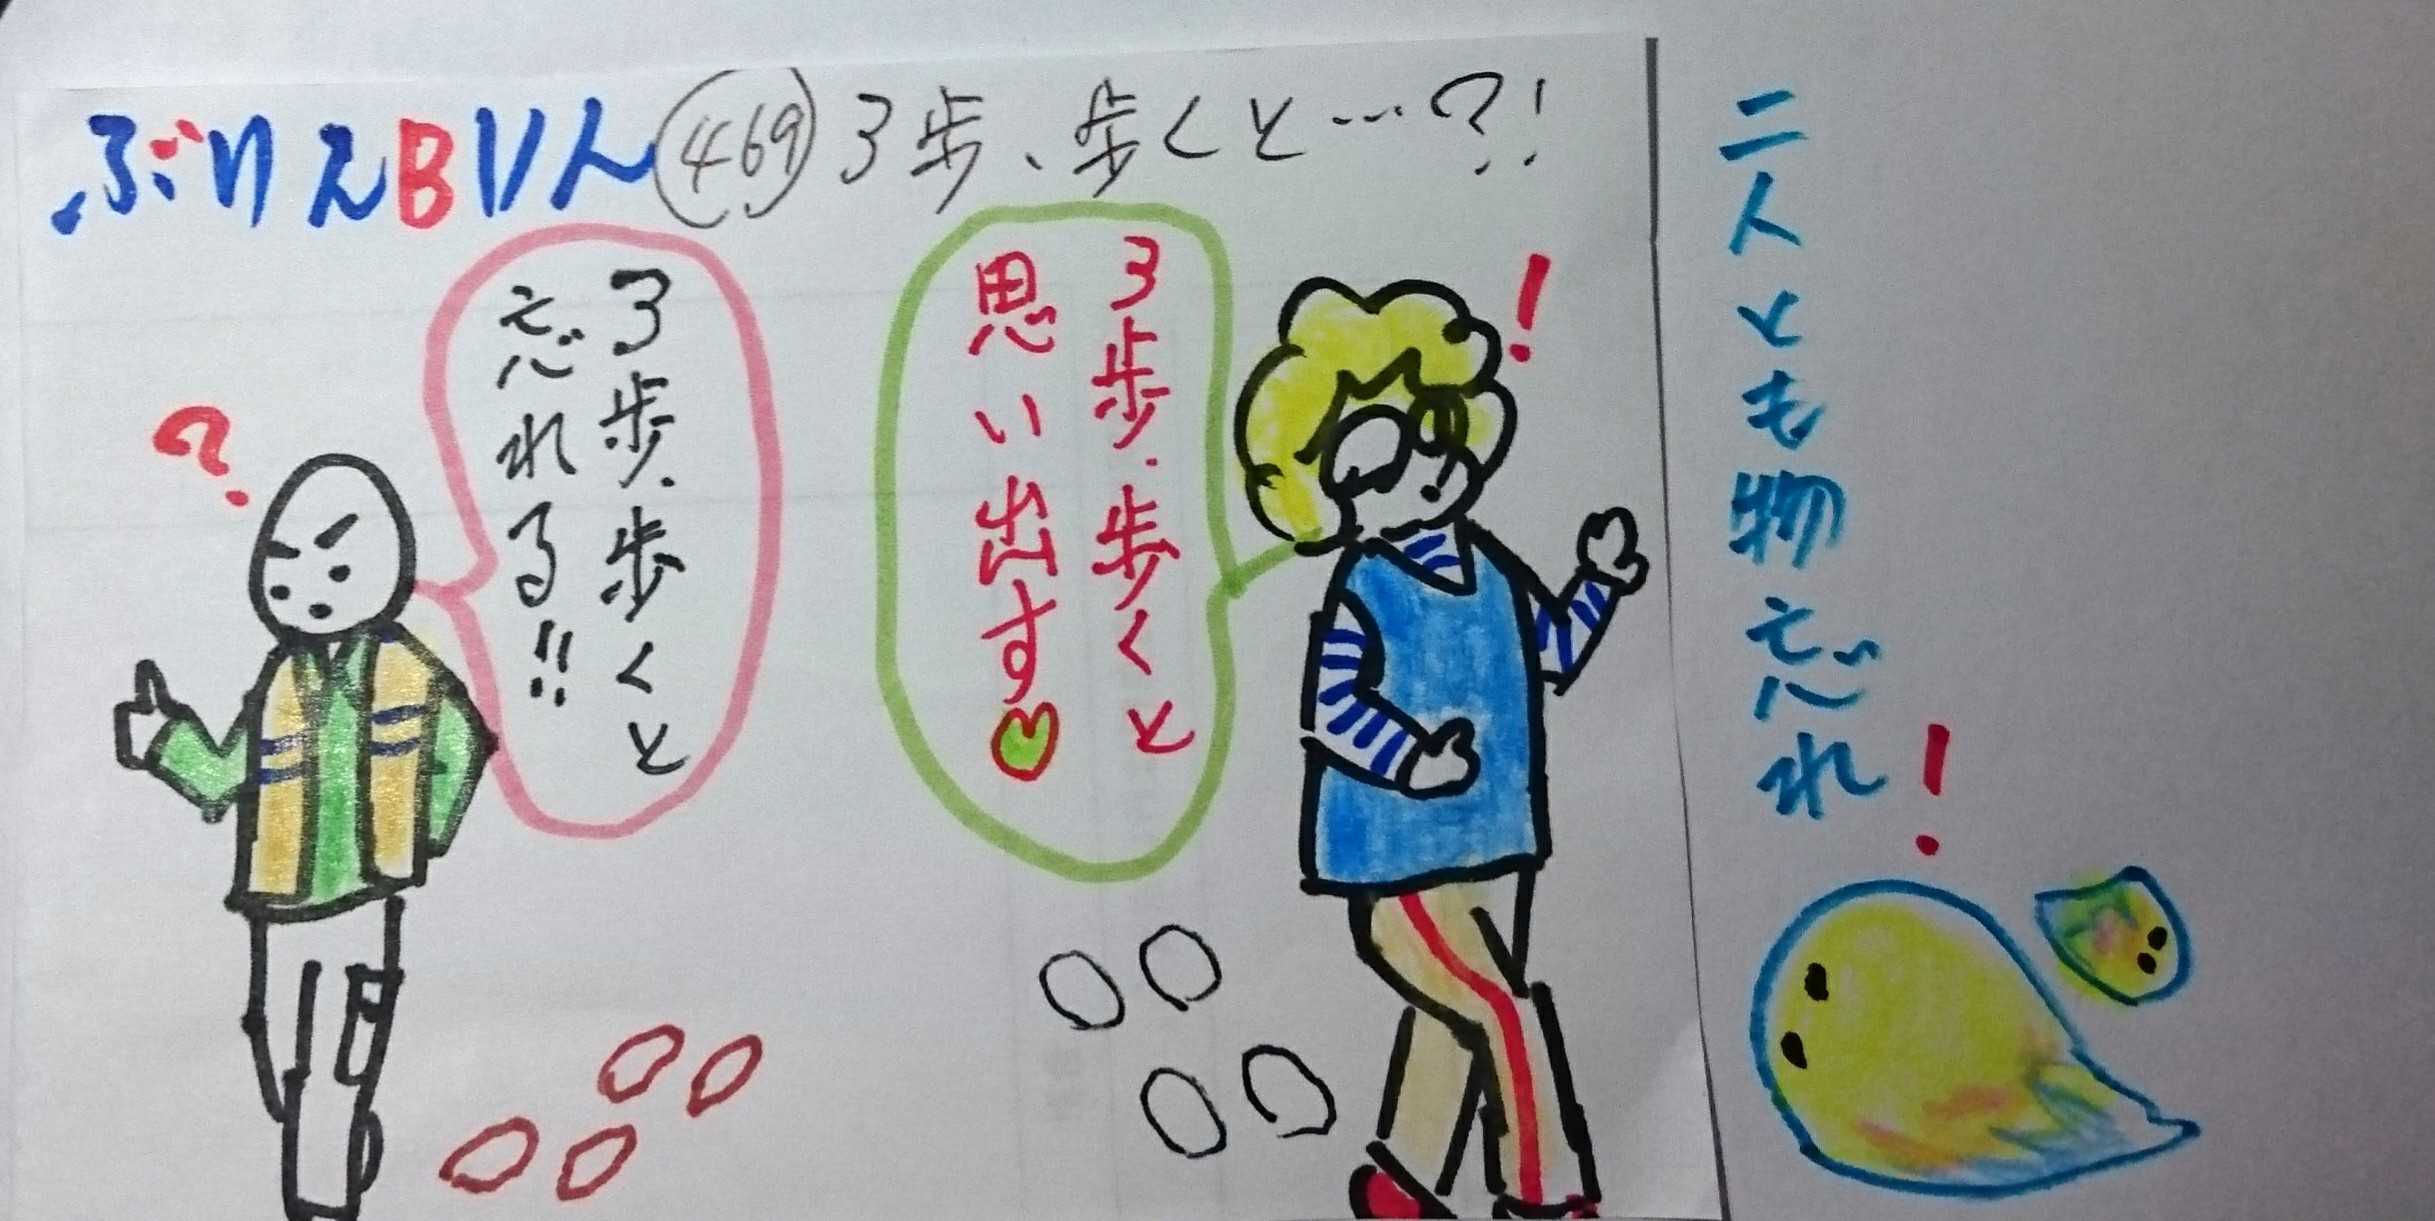 ぶりえBいん 469 3歩、歩くと…?!
3歩、歩くと
忘れる!!
3歩、歩くと
思い出す
二人とも物忘れ!
?
!